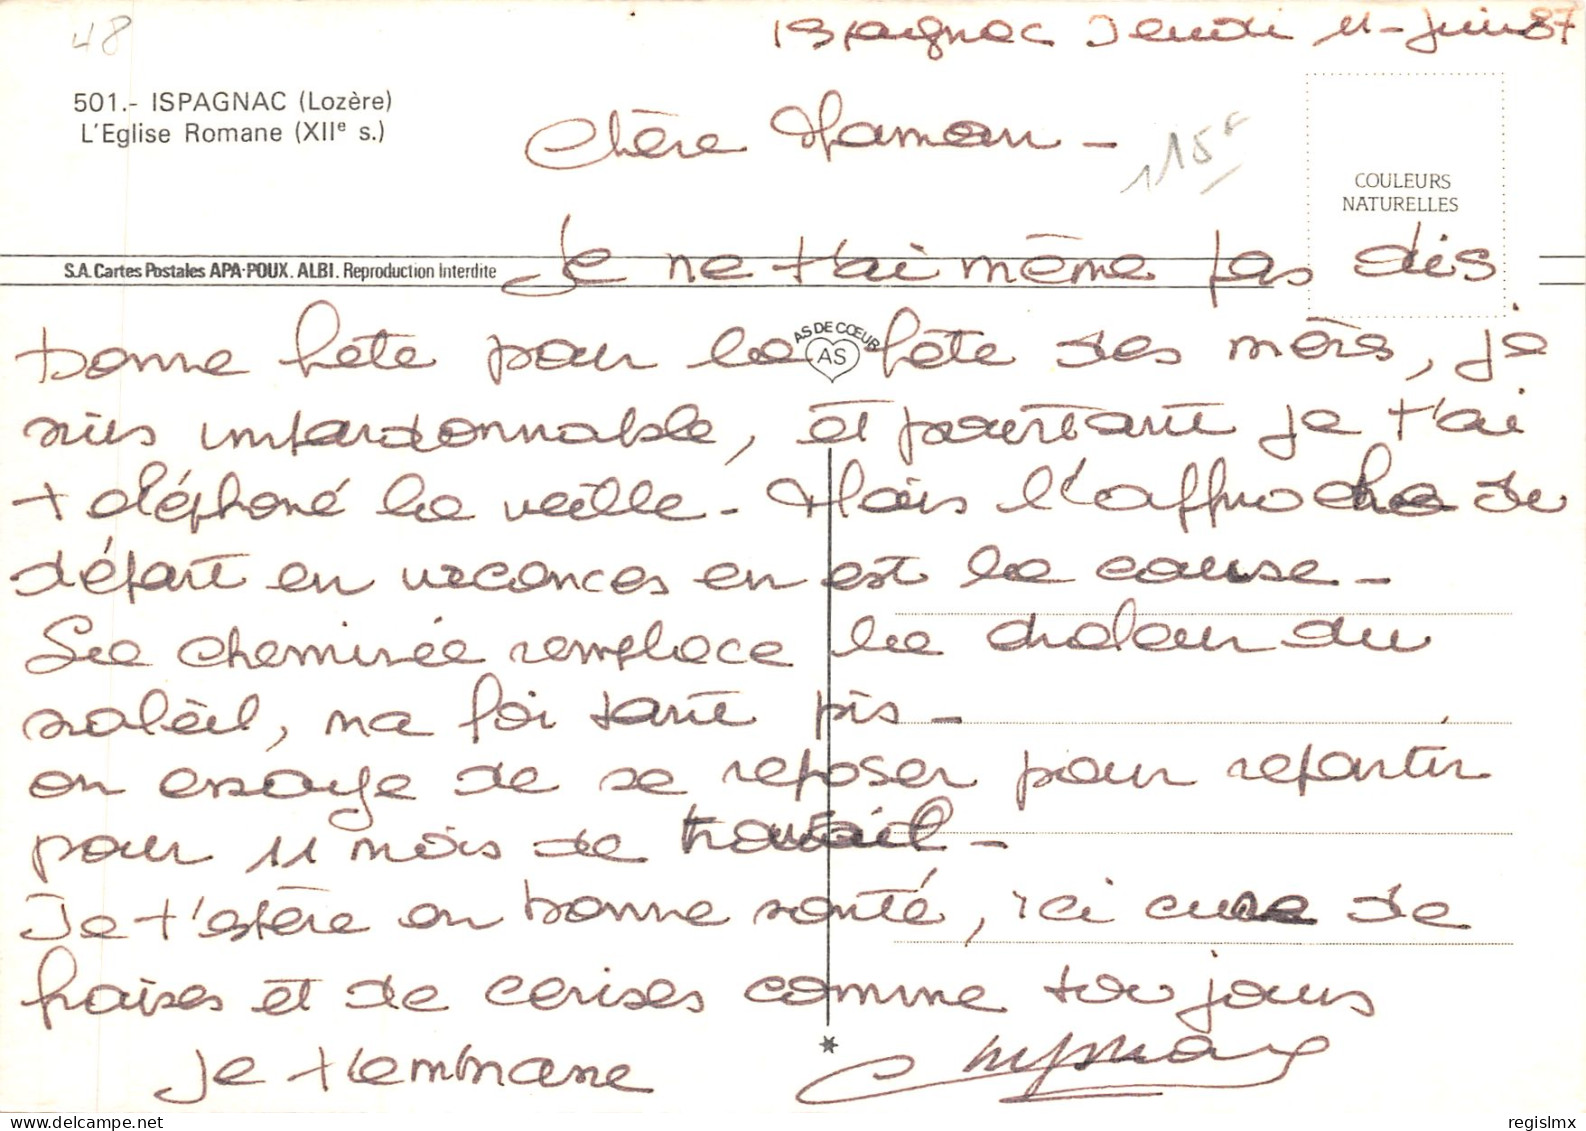 48
Ispagnac Jeudi 11-Juin 87
501.- ISPAGNAC (Lozère)
L'Eglise Romane (XIIe s.)
Chère Maman -
115F
COULEURS
NATURELLES
S.A. Cartes Postales APA-POUX. ALBI. Reproduction Interdite
Je ne t'ai même pas dis
bonne fête pour la fête des mères, je
AS DE CŒUR
AS
suis impardonnable, et pourtant je t'ai
téléphoné la veille - Mais l'approche de
départ en vacances en est la cause -
La cheminée remplace la chaleur du
soleil, ma foi tant pis -
on essaye de se reposer pour repartir
pour 11 mois de travail -
Je t'espère en bonne santé, ici cure de
fraises et de cerises comme toujours
Je t'embrasse
regislmx